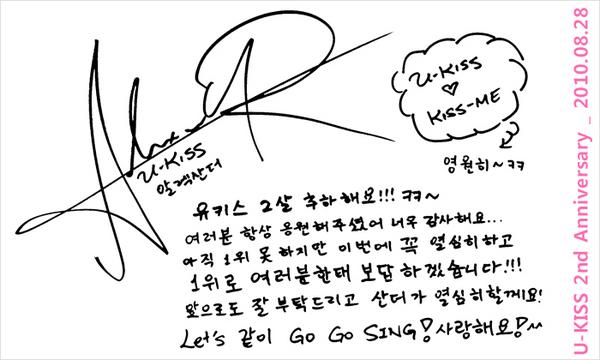 U-KISS
알렉산더
U-KISS
♡
KISS-ME
영원히~ㅋㅋ
유키스 2살 추하해요!!! ㅋㅋ~
여러분 항상 응원해주셨어 너무 감사해요...
아직 1위 못 하지만 이번에 꼭 열심히 하고
1위로 여러분한태 보답 하겠습니다!!!
앞으로도 잘 부탁드리고 산더가 열심히할께요!
Let's 같이 Go Go SING! 사랑해요!~
U-KISS 2nd Anniversary _ 2010.08.28